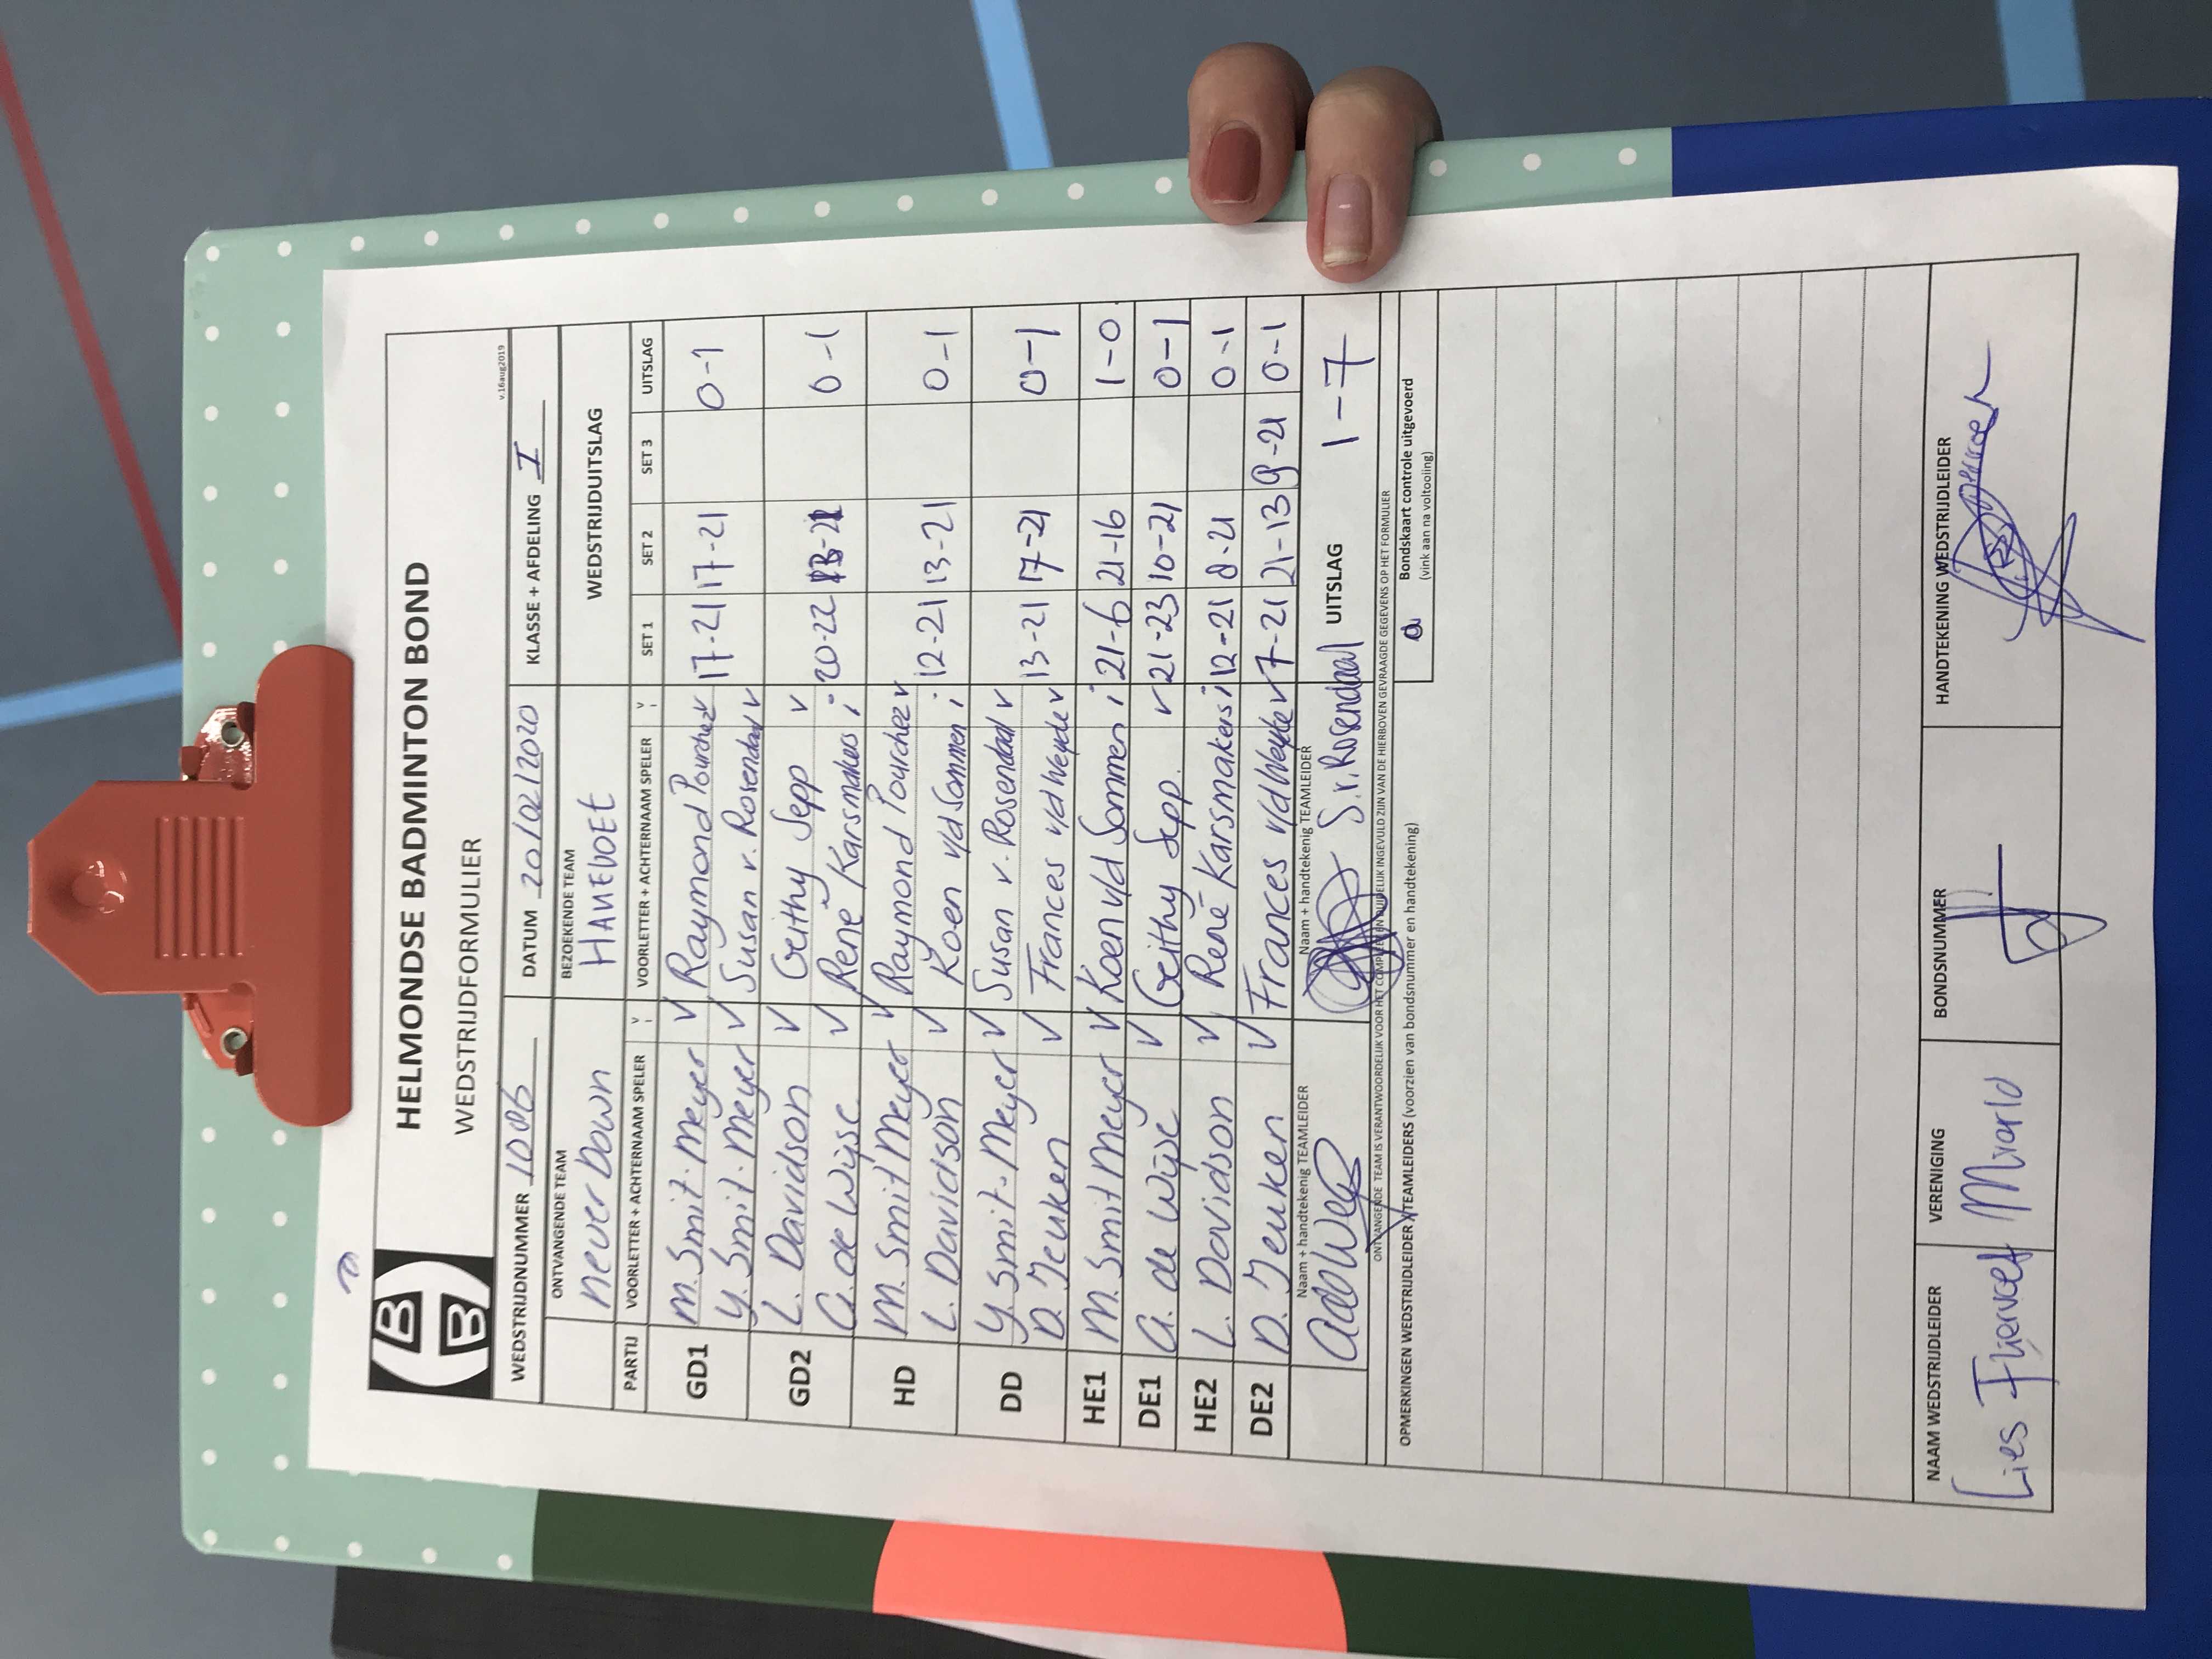 HELMONDSE BADMINTON BOND
WEDSTRIJDFORMULIER
v.16aug2019
WEDSTRIJDNUMMER 1006 DATUM 20/02/2020 KLASSE + AFDELING I
ONTVANGENDE TEAM BEZOEKENDE TEAM WEDSTRIJDUITSLAG
never Down HANEVOET
PARTIJ VOORLETTER + ACHTERNAAM SPELER V i VOORLETTER + ACHTERNAAM SPELER V i SET 1 SET 2 SET 3 UITSLAG
GD1 M. Smit-Meyer V Raymond Pourchez v 17-21 17-21 0-1
Y. Smit-Meyer V Susan v. Rosendaal v
GD2 L. Davidson V Geithy Sepp v 20-22 0-1
A. de Wijse V René Karsmakers i
HD M. Smit Meyer V Raymond Pourchez v 12-21 13-21 0-1
L. Davidson V Koen v/d Sommen i
DD Y. Smit-Meyer V Susan v. Rosendaal v 13-21 17-21 0-1
D. Jeuken V Frances v/d Weyde v
HE1 M. Smit Meyer V Koen v/d Sommen i 21-6 21-16 1-0
DE1 A. de Wijse V Geithy Sepp. v 21-23 10-21 0-1
HE2 L. Davidson V René Karsmakers i 12-21 8-21 0-1
DE2 D. Jeuken V Frances v/d Weyde v 7-21 21-13 9-21 0-1
Naam + handtekenig TEAMLEIDER Naam + handtekenig TEAMLEIDER
S.v.Rosendaal UITSLAG 1-7
ONTVANGENDE TEAM IS VERANTWOORDELIJK VOOR HET COMPLEET EN DUIDELIJK INGEVULD ZIJN VAN DE HIERBOVEN GEVRAAGDE GEGEVENS OP HET FORMULIER
OPMERKINGEN WEDSTRIJDLEIDER / TEAMLEIDERS (voorzien van bondsnummer en handtekening)
Bondskaart controle uitgevoerd
(vink aan na voltooiing)
NAAM WEDSTRIJDLEIDER VERENIGING BONDSNUMMER HANDTEKENING WEDSTRIJDLEIDER
Lies Mixarld